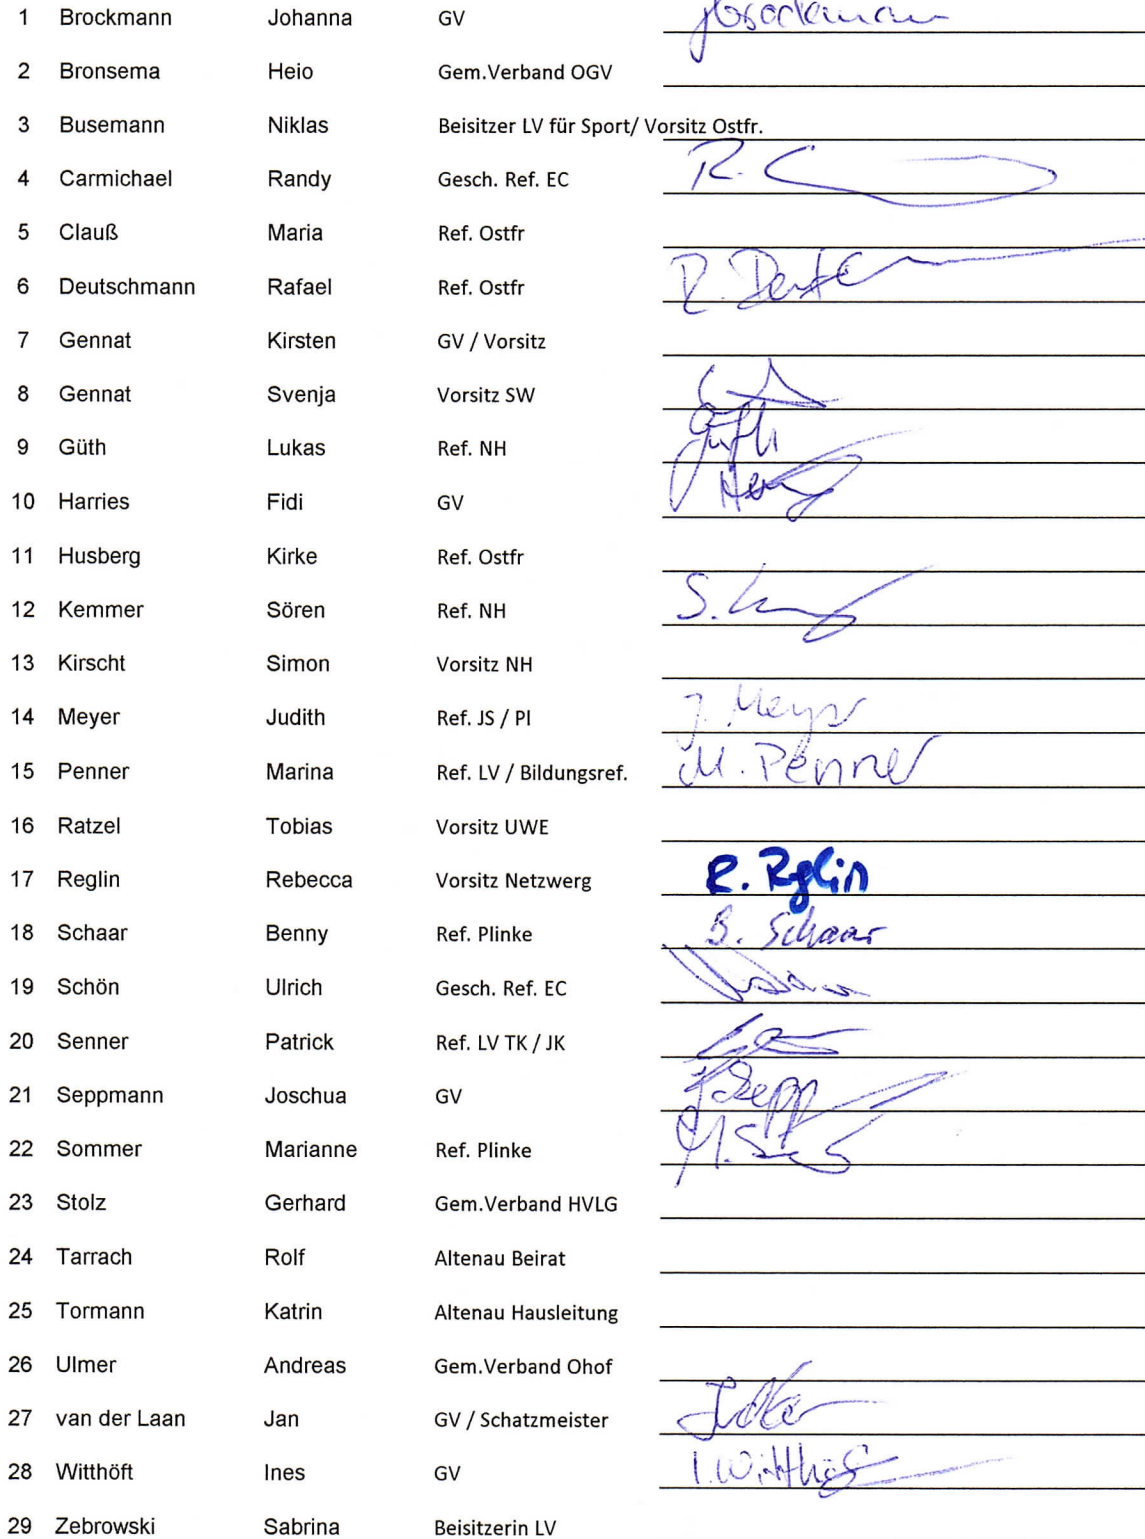 1 Brockmann Johanna GV JBrockmann
2 Bronsema Heio Gem.Verband OGV
3 Busemann Niklas Beisitzer LV für Sport/ Vorsitz Ostfr.
4 Carmichael Randy Gesch. Ref. EC R. C
5 Clauß Maria Ref. Ostfr
6 Deutschmann Rafael Ref. Ostfr R.
7 Gennat Kirsten GV / Vorsitz
8 Gennat Svenja Vorsitz SW
9 Güth Lukas Ref. NH Güth
10 Harries Fidi GV
11 Husberg Kirke Ref. Ostfr
12 Kemmer Sören Ref. NH S.
13 Kirscht Simon Vorsitz NH
14 Meyer Judith Ref. JS / PI J. Meyer
15 Penner Marina Ref. LV / Bildungsref. M. Penner
16 Ratzel Tobias Vorsitz UWE
17 Reglin Rebecca Vorsitz Netzwerg R. Reglin
18 Schaar Benny Ref. Plinke B. Schaar
19 Schön Ulrich Gesch. Ref. EC
20 Senner Patrick Ref. LV TK / JK
21 Seppmann Joschua GV JSepp
22 Sommer Marianne Ref. Plinke M.
23 Stolz Gerhard Gem.Verband HVLG
24 Tarrach Rolf Altenau Beirat
25 Tormann Katrin Altenau Hausleitung
26 Ulmer Andreas Gem.Verband Ohof
27 van der Laan Jan GV / Schatzmeister
28 Witthöft Ines GV I. Witthöft
29 Zebrowski Sabrina Beisitzerin LV